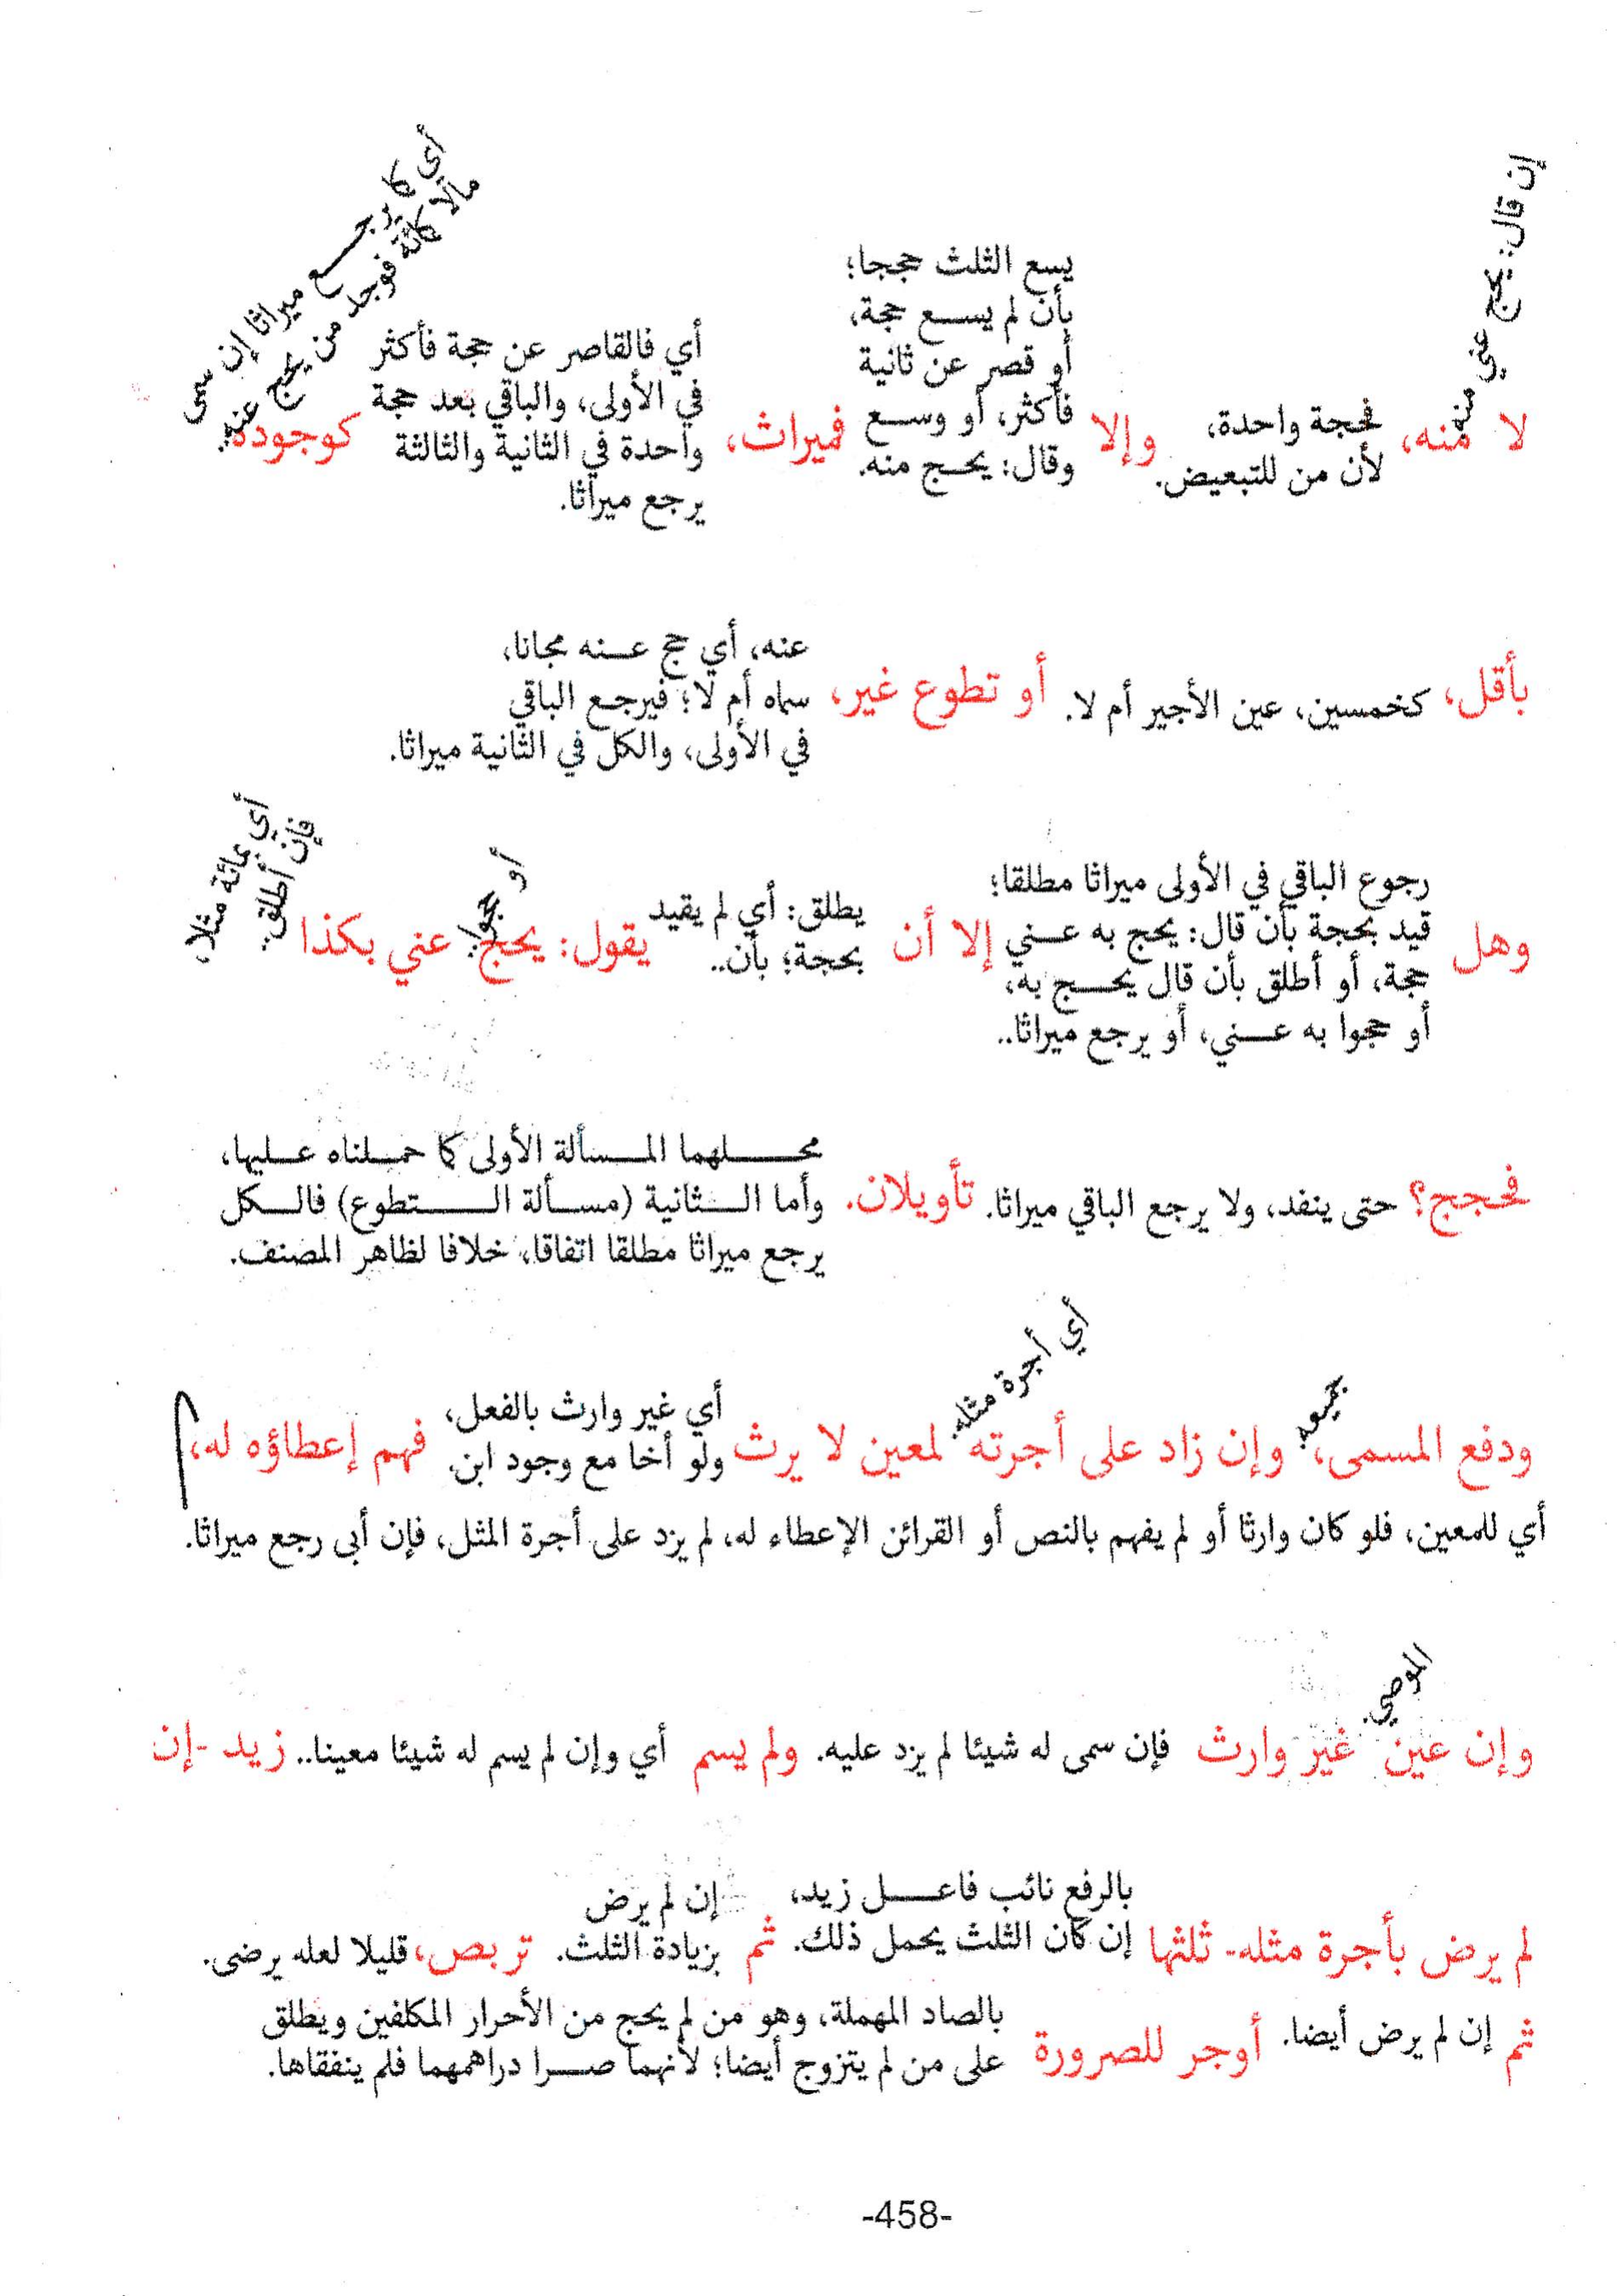 إن قال: يحج عني منه
لا منه،
فحجة واحدة،
لأن من للتبعيض.
وإلا
يسع الثلث حججا؛
بأن لم يسع حجة،
أو قصر عن ثانية
فأكثر، أو وسع
وقال: يحج منه.
فميراث،
أي فالقاصر عن حجة فأكثر
في الأولى، والباقي بعد حجة
واحدة في الثانية والثالثة
يرجع ميراثا.
كوجوده
أي كا يرجع ميراثا إن سمى
مالا كمائة فوجد من يحج عنه..
بأقل،
كخمسين، عين الأجير أم لا.
أو تطوع غير،
عنه، أي حج عنه مجانا،
سماه أم لا؛ فيرجع الباقي
في الأولى، والكل في الثانية ميراثا.
وهل
رجوع الباقي في الأولى ميراثا مطلقا؛
قيد بحجة بأن قال: يحج به عني
حجة، أو أطلق بأن قال يحج به،
أو حجوا به عني، أو يرجع ميراثا..
إلا أن
يطلق: أي لم يقيد
بحجة؛ بأن..
يقول: يحج عني بكذا
أو حجوا.
أي بمائة مثلا،
فإن أطلق..
فحجج؟
حتى ينفد، ولا يرجع الباقي ميراثا.
تأويلان.
محلهما المسألة الأولى كما حملناه عليها،
وأما الثانية (مسألة التطوع) فالكل
يرجع ميراثا مطلقا اتفاقا، خلافا لظاهر المصنف.
ودفع المسمى،
جميعه
وإن زاد على أجرته
أي أجرة مثله.
لمعين لا يرث
أي غير وارث بالفعل،
ولو أخا مع وجود ابن.
فهم إعطاؤه له،
أي للمعين، فلو كان وارثا أو لم يفهم بالنص أو القرائن الإعطاء له، لم يزد على أجرة المثل، فإن أبى رجع ميراثا.
وإن عين
الموصي.
غير وارث
فإن سمى له شيئا لم يزد عليه.
ولم يسم
أي وإن لم يسم له شيئا معينا..
زيد -إن
لم يرض بأجرة مثله- ثلثها
بالرفع نائب فاعل زيد،
إن كان الثلث يحمل ذلك.
ثم
إن لم يرض
بزيادة الثلث.
تربص،
قليلا لعله يرضى.
ثم
إن لم يرض أيضا.
أوجر للصرورة
بالصاد المهملة، وهو من لم يحج من الأحرار المكلفين ويطلق
على من لم يتزوج أيضا؛ لأنهما صرا دراهمهما فلم ينفقاها.
-458-